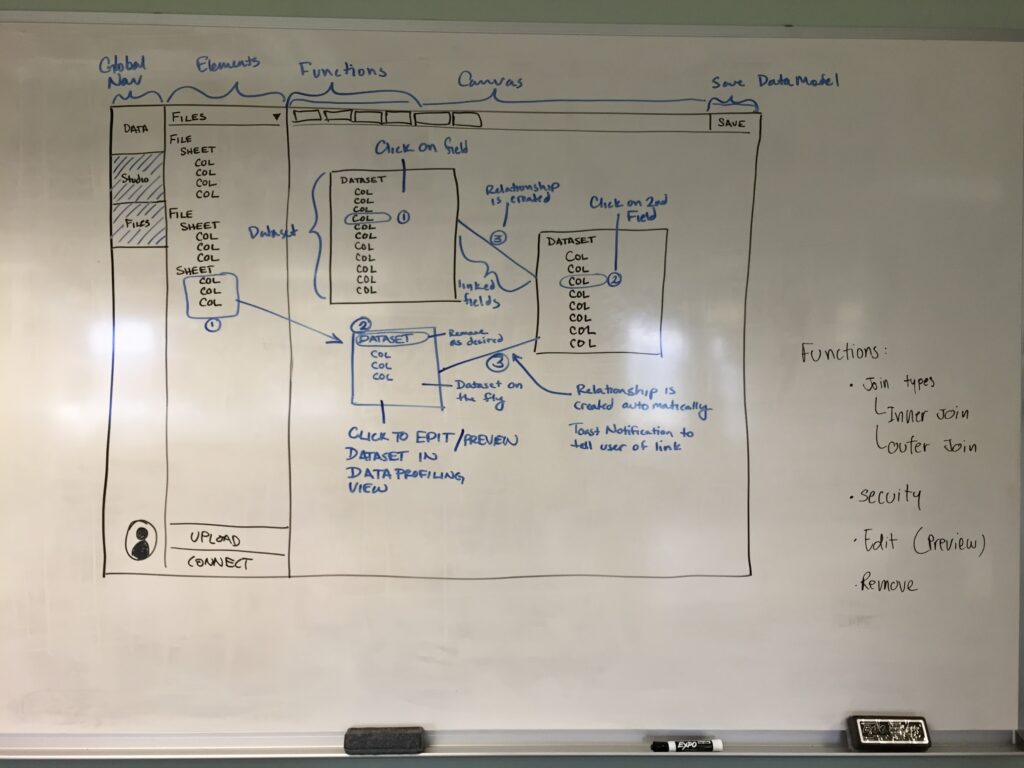 Global
Nav
Elements
Functions
Canvas
Save Data Model
DATA
Studio
FILES
FILES
FILE
SHEET
COL
COL
COL
COL
FILE
SHEET
COL
COL
COL
SHEET
COL
COL
COL
1
UPLOAD
CONNECT
SAVE
Click on field
Dataset
DATASET
COL
COL
COL
COL
COL
COL
COL
COL
COL
COL
COL
1
Relationship
is created
3
linked
fields
Click on 2nd
Field
DATASET
COL
COL
COL
COL
COL
COL
COL
COL
2
2
DATASET
COL
COL
COL
Rename
as desired
3
Dataset on
the fly
CLICK TO EDIT/PREVIEW
DATASET IN
DATA PROFILING
VIEW
Relationship is
created automatically
Toast Notification to
tell user of link
Functions:
• Join types
Inner Join
outer Join
• secuity
• Edit (Preview)
• Remove
EXPO